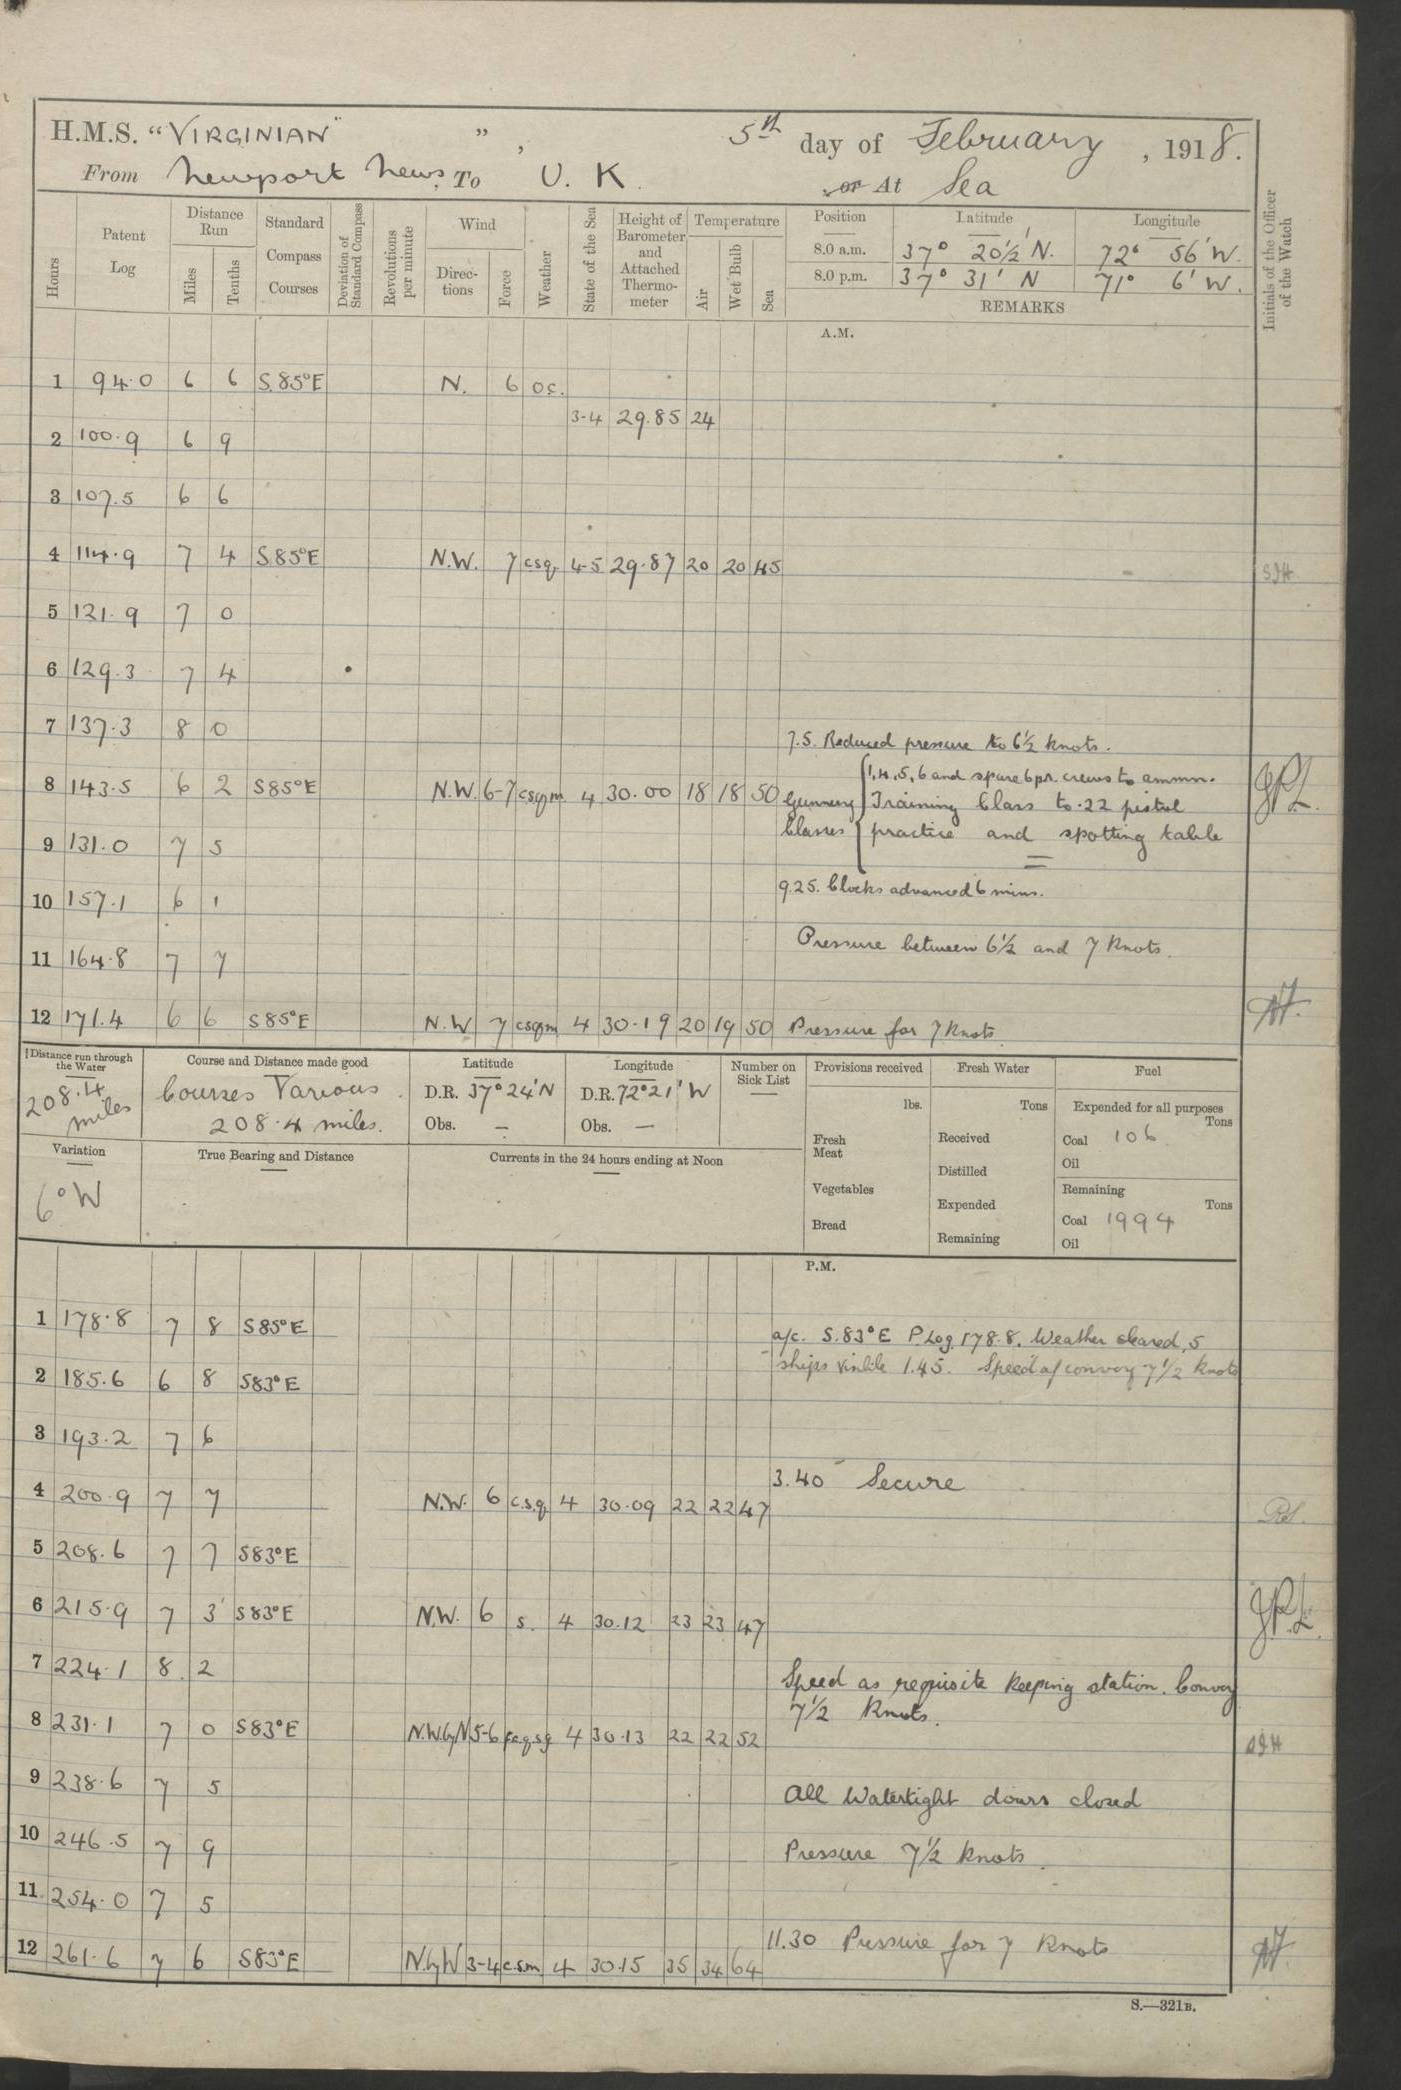 H.M.S. “VIRGINIAN” ”, 5th day of February, 1918.
From Newport News, To U.K. or At Sea
Hours Patent Log Distance Run Miles Tenths Standard Compass Courses Deviation of Standard Compass Revolutions per minute Wind Directions Force Weather State of the Sea Height of Barometer and Attached Thermometer Temperature Air Wet Bulb Sea Position Latitude Longitude Initials of the Officer of the Watch
8.0 a.m. 37° 20½' N. 72° 56' W.
8.0 p.m. 37° 31' N 71° 6' W.
REMARKS
A.M.
1 94.0 6 6 S.85°E N. 6 oc.
3-4 29.85 24
2 100.9 6 9
3 107.5 6 6
4 114.9 7 4 S.85°E N.W. 7 csq 4-5 29.87 20 20 45
5 121.9 7 0
6 129.3 7 4
7 137.3 8 0
7.5. Reduced pressure to 6½ knots.
8 143.5 6 2 S85°E N.W. 6-7 csqm 4 30.00 18 18 50 J.P.L.
Gunnery Classes { 1,4,5,6 and spare 6pr. crews to ammn.
Training Class to .22 pistol
practice and spotting table
9 131.0 7 5
9.25. Clocks advanced 6 mins.
10 157.1 6 1
Pressure between 6½ and 7 knots.
11 164.8 7 7
12 171.4 6 6 S85°E N.W 7 csqm 4 30.19 20 19 50 Pressure for 7 knots.
Distance run through the Water Course and Distance made good Latitude Longitude Number on Sick List Provisions received Fresh Water Fuel
208.4 miles Courses Various. 208.4 miles. D.R. 37° 24' N D.R. 72° 21' W
Obs. — Obs. —
lbs. Tons Expended for all purposes Tons
Fresh Meat Received Coal 106
Distilled Oil
Variation True Bearing and Distance Currents in the 24 hours ending at Noon
6° W
Vegetables Expended Remaining Tons
Bread Remaining Coal 1994
Oil
P.M.
1 178.8 7 8 S85°E
a/c. S.83°E P.Log 178.8. Weather cleared, 5
ships visible 1.45. Speed of convoy 7½ knots
2 185.6 6 8 S83°E
3 193.2 7 6
3.40 Secure
4 200.9 7 7 N.W. 6 c.s.q 4 30.09 22 22 47
5 208.6 7 7 S83°E
6 215.9 7 3 S83°E N.W. 6 s. 4 30.12 23 23 47 J.P.L.
7 224.1 8 2
Speed as requisite keeping station. Convoy
7½ knots.
8 231.1 7 0 S83°E N.W.byN 5-6 4 30.13 22 22 52
9 238.6 7 5
All Watertight doors closed
10 246.5 7 9
Pressure 7½ knots.
11 254.0 7 5
11.30 Pressure for 7 knots
12 261.6 7 6 S83°E N.byW 3-4 c.s.m 4 30.15 35 34 64
S.—321B.